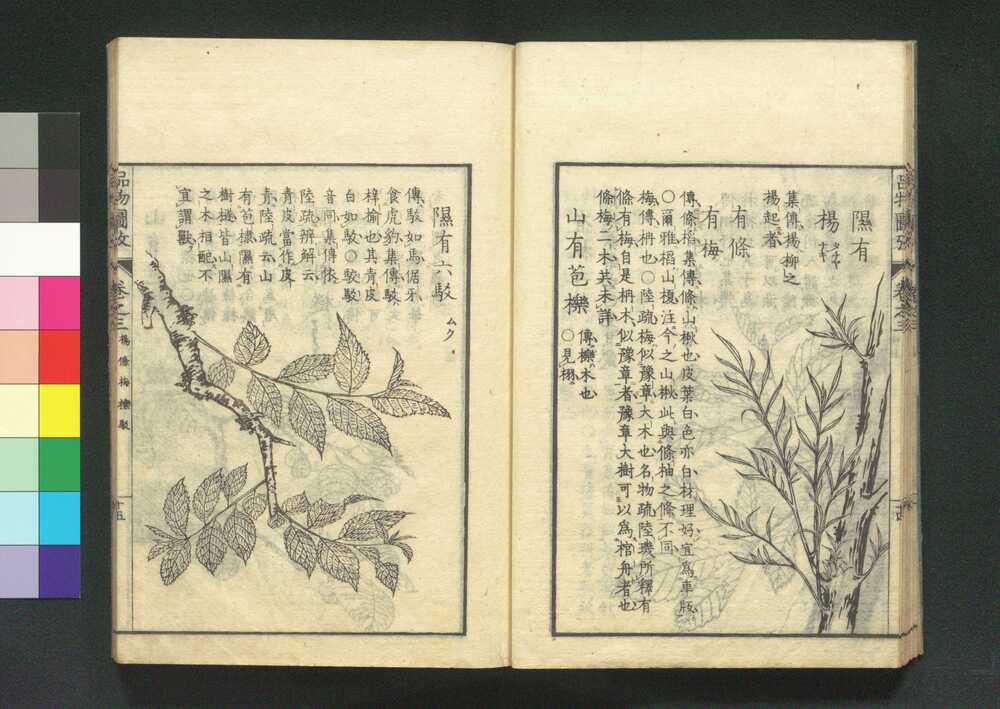 隰有
楊
集傳楊柳之
揚起者
有條
有梅
傳條槄集傳條山楸也皮葉白色亦白材理好宜爲車版
○爾雅槄山榎注今之山楸此與條柚之條不同
梅傳枏也○陸疏梅似豫章大木也名物疏陸璣所釋有
條有梅自是枏木似豫章者豫章大樹可以爲棺舟者也
條梅二木共未詳
山有苞櫟
傳櫟木也
○見栩
品物圖攷
卷之三
楊條梅櫟駁
十五
隰有六駮
ムク
傳駮如馬倨牙
食虎豹集傳駮
梓榆也其青皮
白如駮○駮駁
音同集傳依
陸疏辨解云
青皮當作皮
青陸疏云山
有苞棣隰有
樹檖皆山隰
之木相配不
宜謂獸